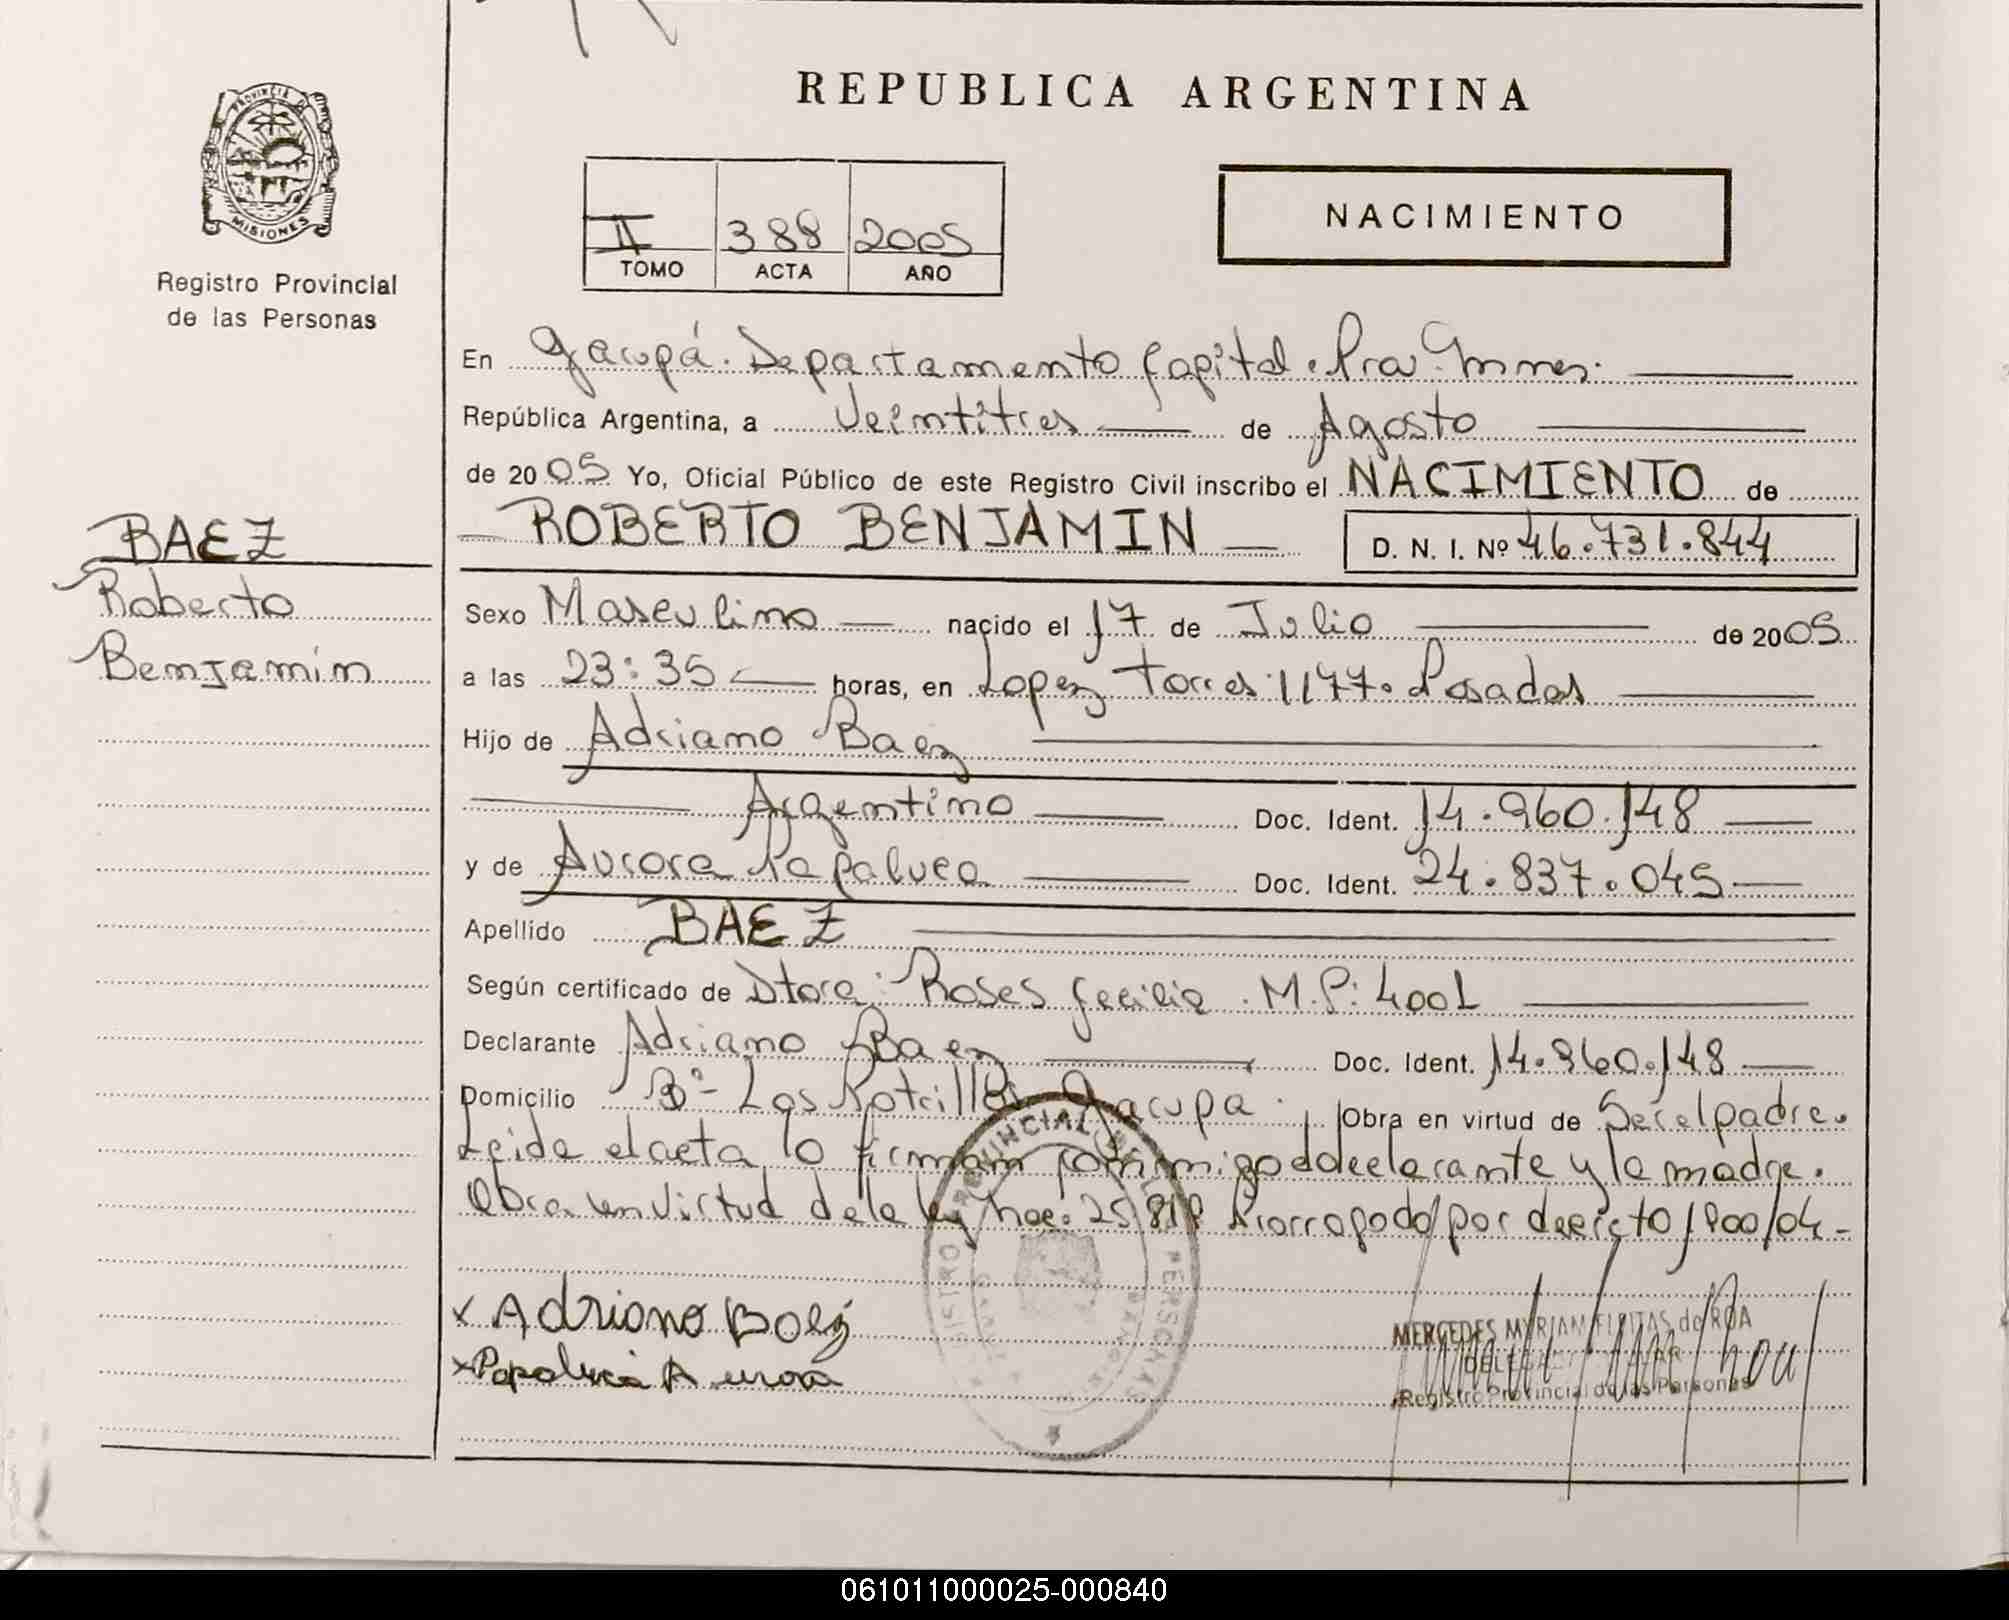 REPUBLICA ARGENTINA
PROVINCIA DE MISIONES
Registro Provincial
de las Personas
II 388 2005
TOMO ACTA AÑO
NACIMIENTO
En Garupá. Departamento Capital. Pcia. Mnes.
República Argentina, a Veintitres de Agosto
de 2005 Yo, Oficial Público de este Registro Civil inscribo el NACIMIENTO de
ROBERTO BENJAMIN D. N. I. Nº 46.731.844
BAEZ
Roberto
Benjamin
Sexo Masculino nacido el 17 de Julio de 2005
a las 23:35 horas, en Lopez Torres 1177. Posadas
Hijo de Adriano Baez
Argentino Doc. Ident. 14.960.148
y de Aurora Papaluca Doc. Ident. 24.837.045
Apellido BAEZ
Según certificado de Dtora: Roses Cecilia. M.P: 4001
Declarante Adriano Baez Doc. Ident. 14.960.148
Domicilio Bº- Los Potrillos Garupa. Obra en virtud de Ser el padre.
Leida el acta, lo firman conmigo el declarante y la madre.
Obra en virtud de la ley Nac. 25.819 Prorrogado por decreto 1900/04-
x Adriano Baez
x Papaluca Aurora
MERCEDES MYRIAM FLEITAS de ROA
Registro Provincial de las Personas
061011000025-000840